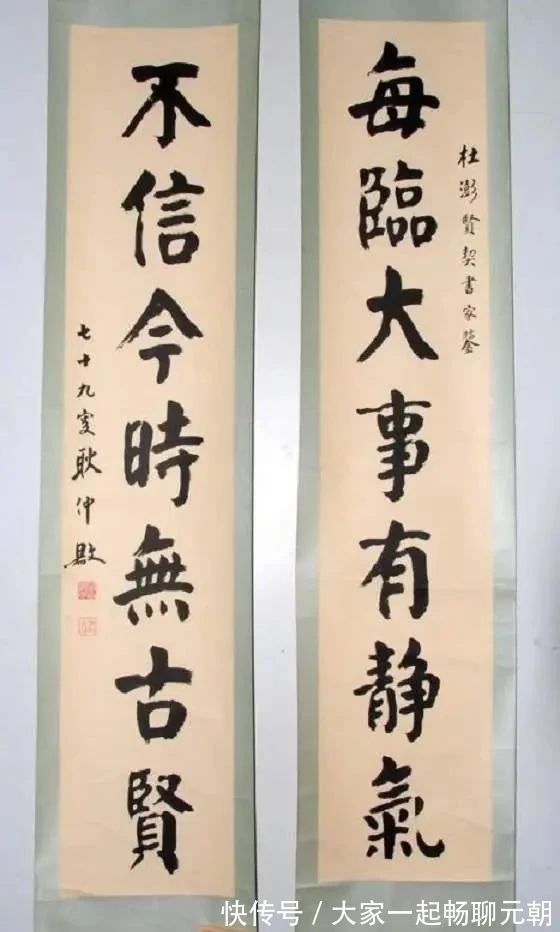 杜澎賢契書家鑒
每臨大事有静氣
不信今時無古賢
七十九叟耿仲
快传号 / 大家一起畅聊元朝